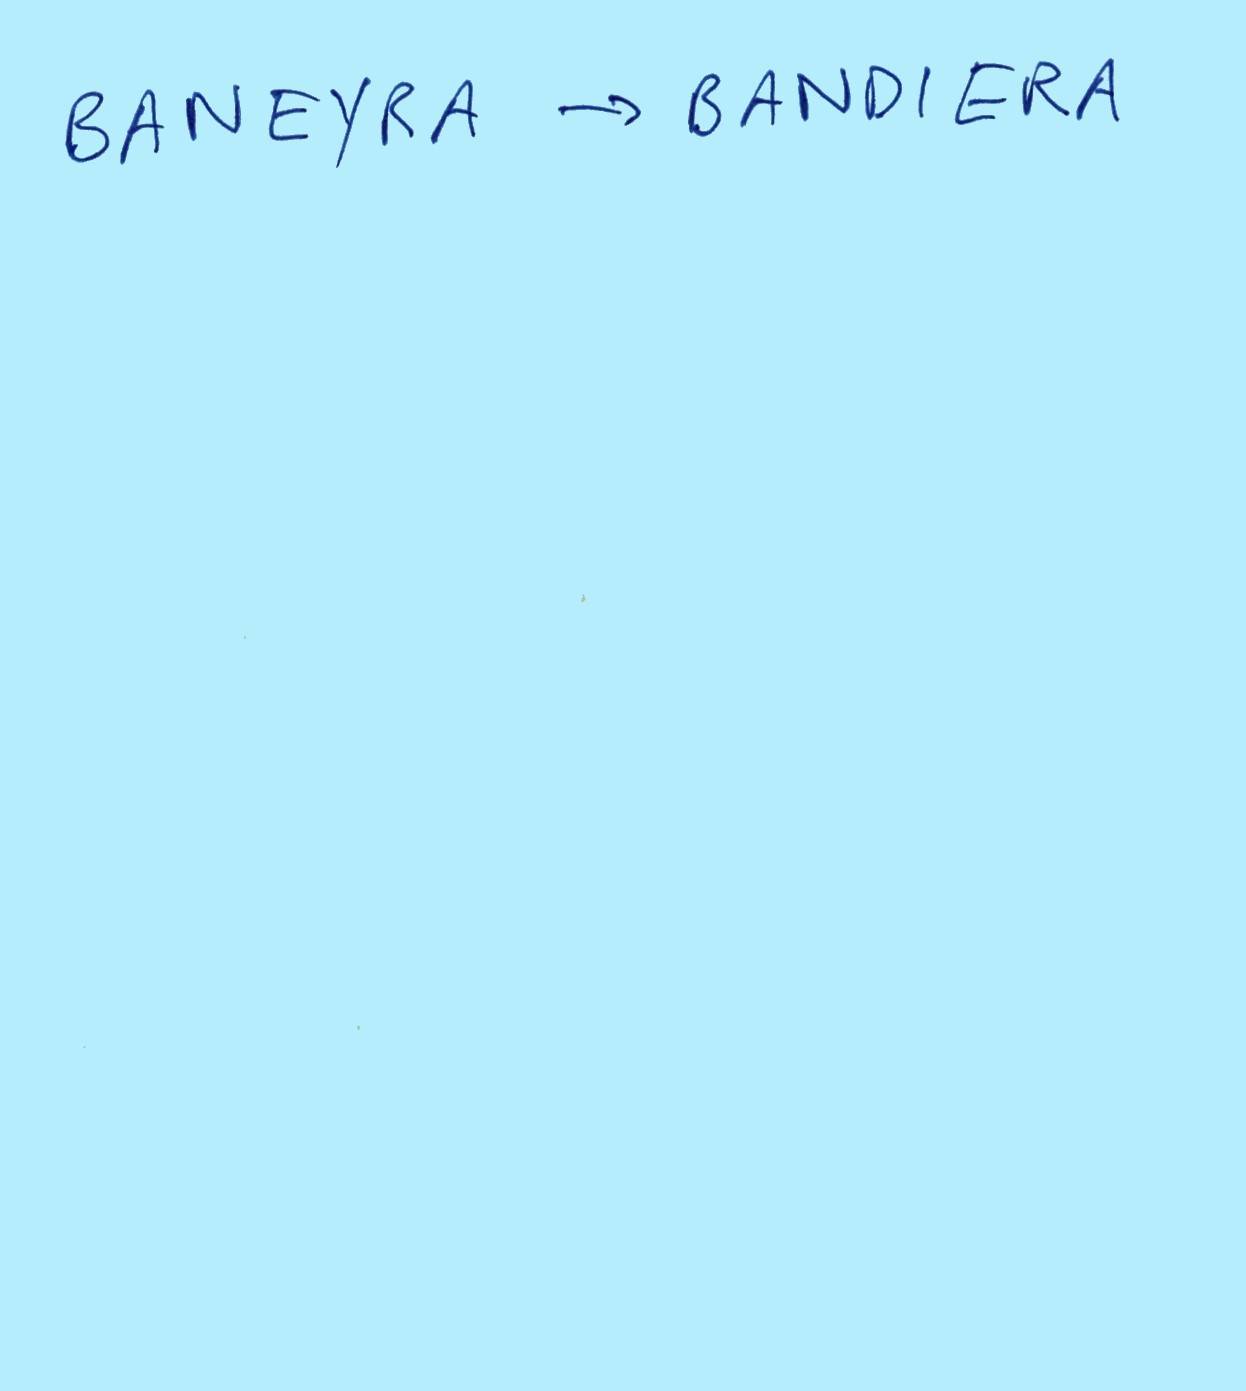 BANEYRA → BANDIERA